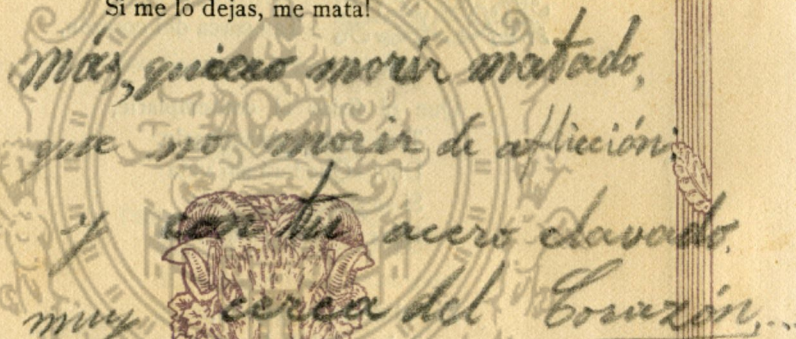 Si me lo dejas, me mata!
Más, quiero morir matado,
que no morir de aflicción;
y con tu acero clavado,
muy cerca del Corazón...